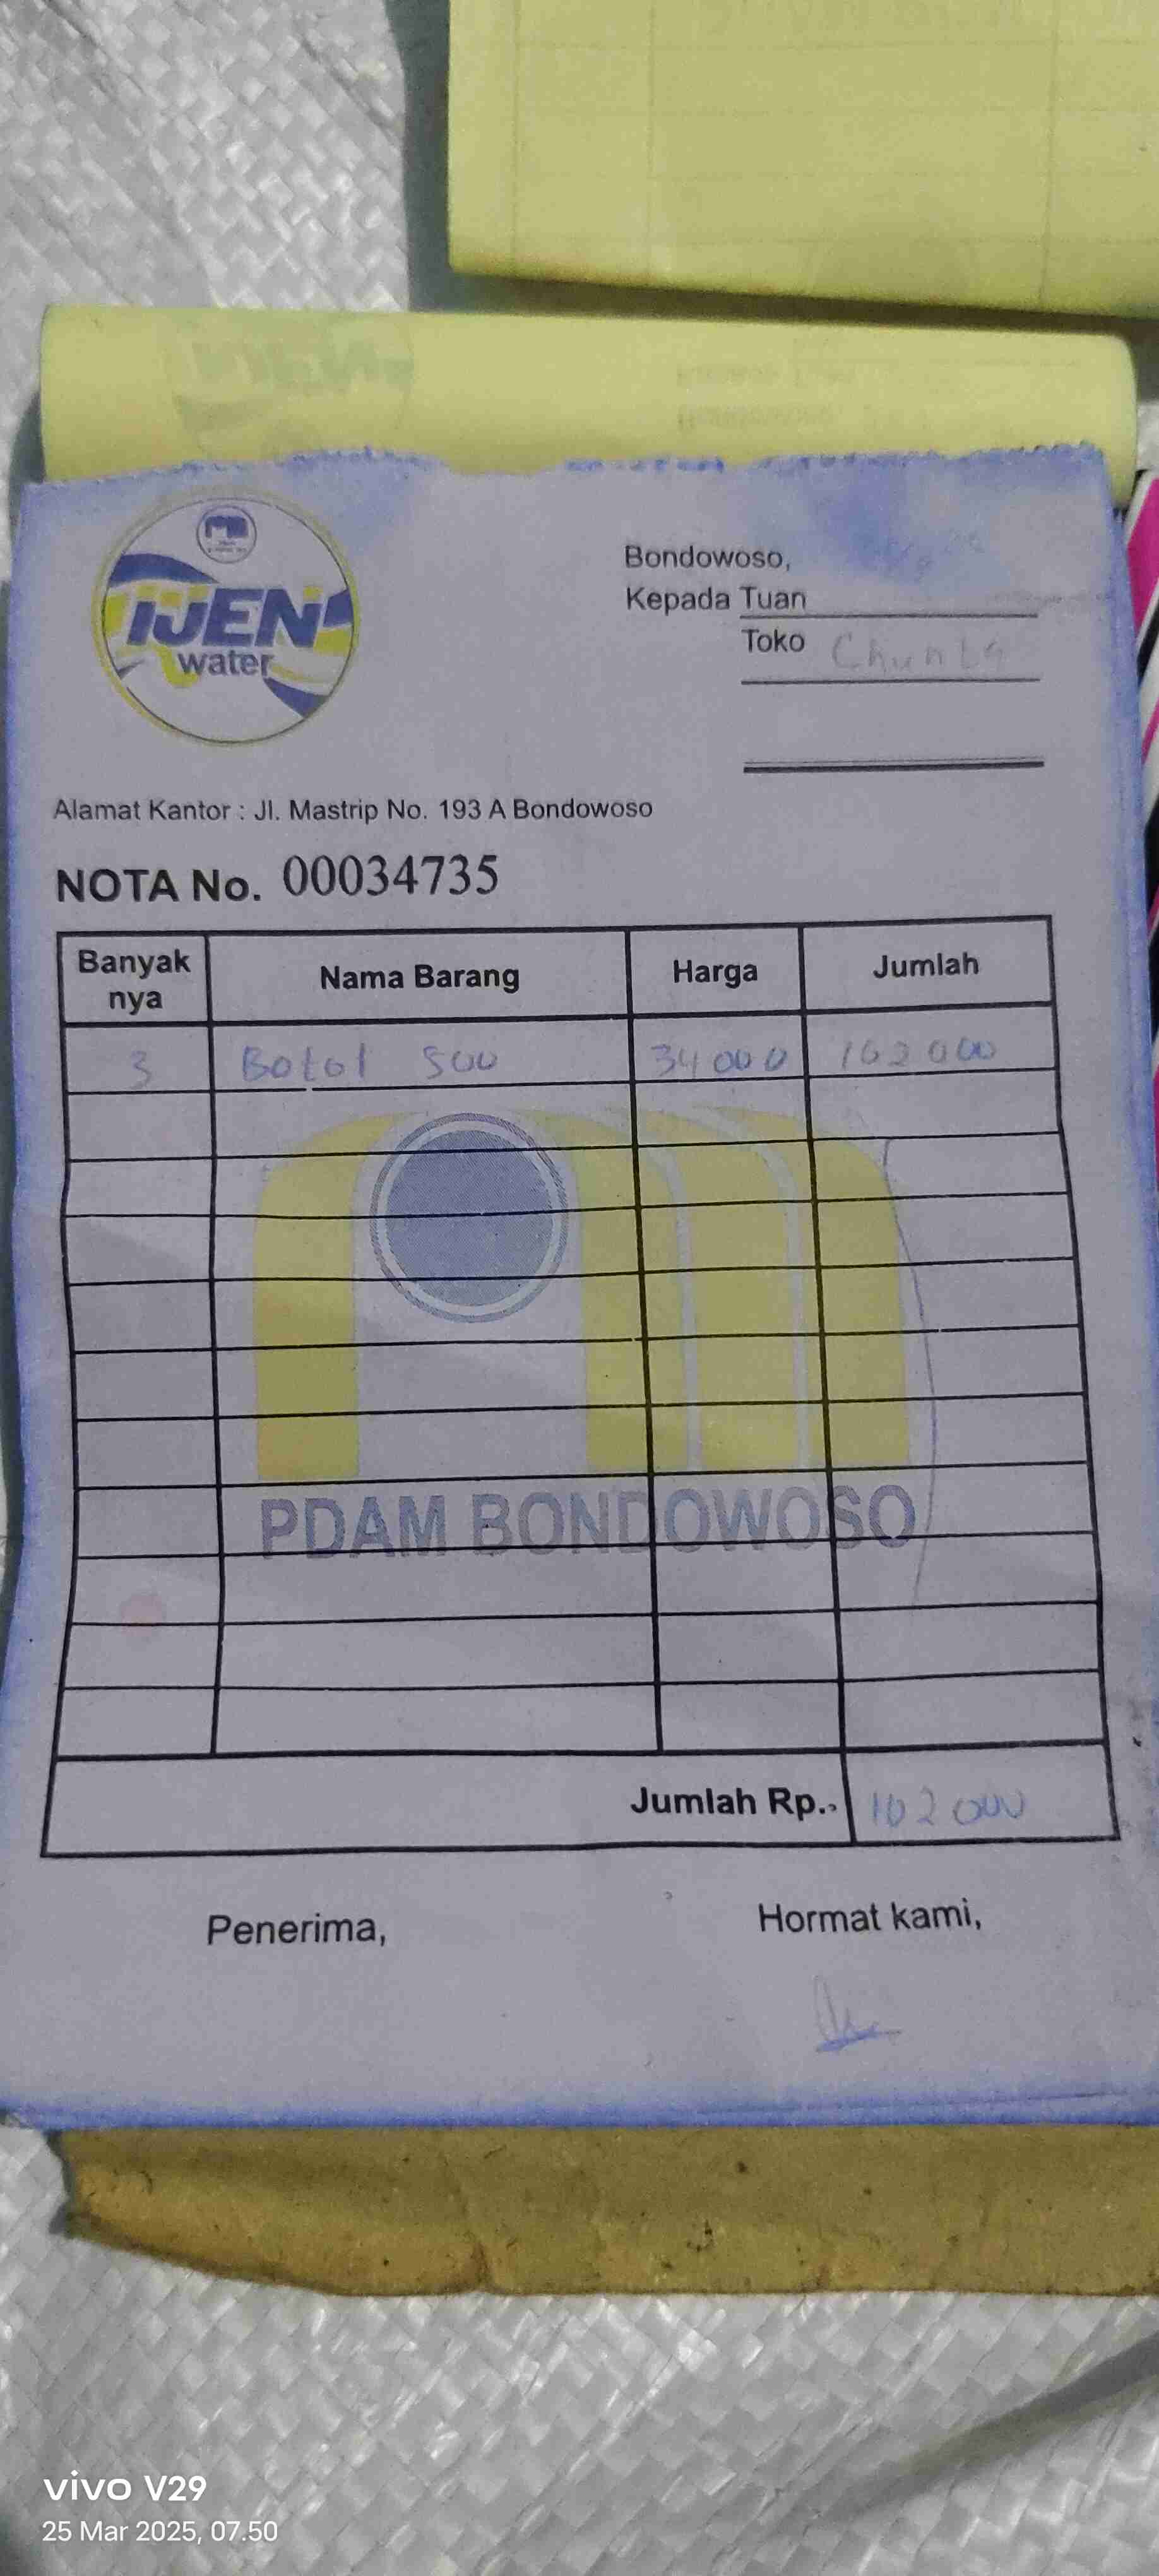 IJEN
water
Bondowoso,
Kepada Tuan
Toko
Alamat Kantor : Jl. Mastrip No. 193 A Bondowoso
NOTA No. 00034735
Banyak nya Nama Barang Harga Jumlah
3 Botol 500 34 000 102 000
PDAM BONDOWOSO
Jumlah Rp., 102 000
Penerima, Hormat kami,
vivo V29
25 Mar 2025, 07.50